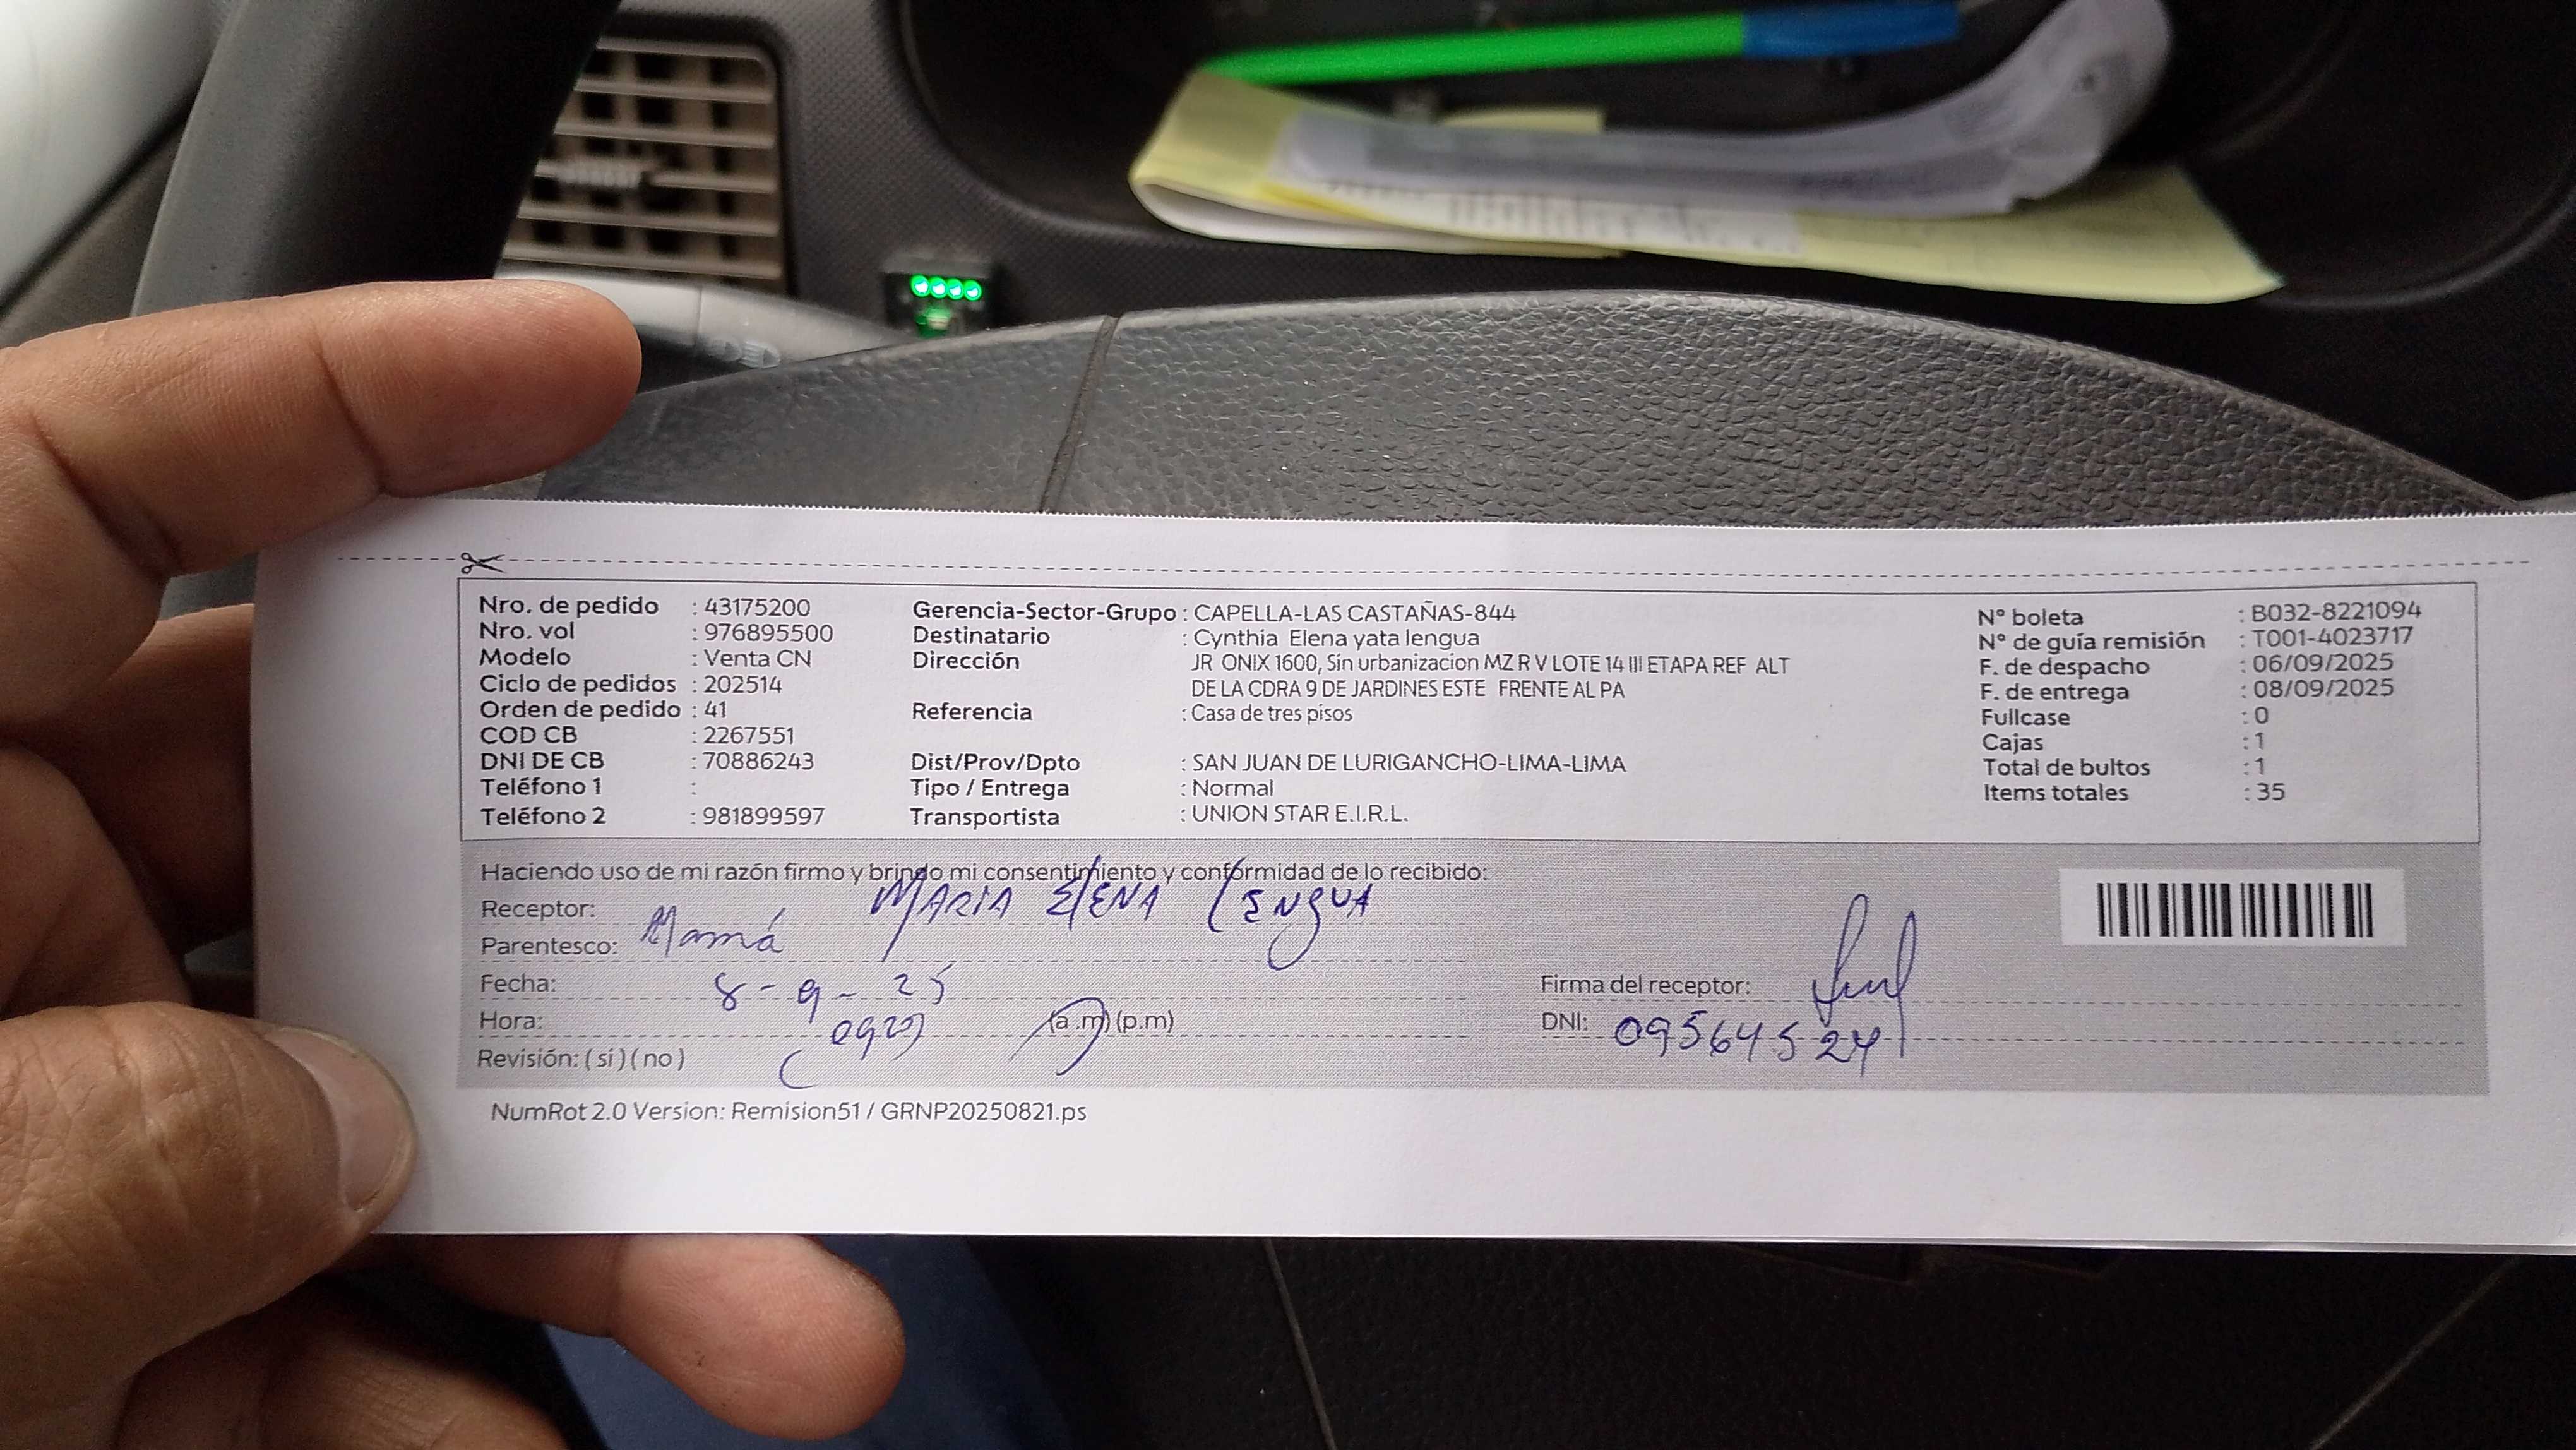 Nro. de pedido : 43175200 Gerencia-Sector-Grupo : CAPELLA-LAS CASTAÑAS-844 N° boleta : B032-8221094
Nro. vol : 976895500 Destinatario : Cynthia Elena yata lengua N° de guía remisión : T001-4023717
Modelo : Venta CN Dirección JR ONIX 1600, Sin urbanizacion MZ R V LOTE 14 III ETAPA REF ALT F. de despacho : 06/09/2025
Ciclo de pedidos : 202514 DE LA CDRA 9 DE JARDINES ESTE FRENTE AL PA F. de entrega : 08/09/2025
Orden de pedido : 41 Referencia : Casa de tres pisos Fullcase : 0
COD CB : 2267551 Cajas : 1
DNI DE CB : 70886243 Dist/Prov/Dpto : SAN JUAN DE LURIGANCHO-LIMA-LIMA Total de bultos : 1
Teléfono 1 : Tipo / Entrega : Normal Items totales : 35
Teléfono 2 : 981899597 Transportista : UNION STAR E.I.R.L.
Haciendo uso de mi razón firmo y brindo mi consentimiento y conformidad de lo recibido:
Receptor: MARIA ElENA LENGUA
Parentesco: Mamá
Fecha: 8-9-25 Firma del receptor:
Hora: (a.m) (p.m) DNI: 09564524
Revisión: ( si ) ( no )
NumRot 2.0 Version: Remision51 / GRNP20250821.ps